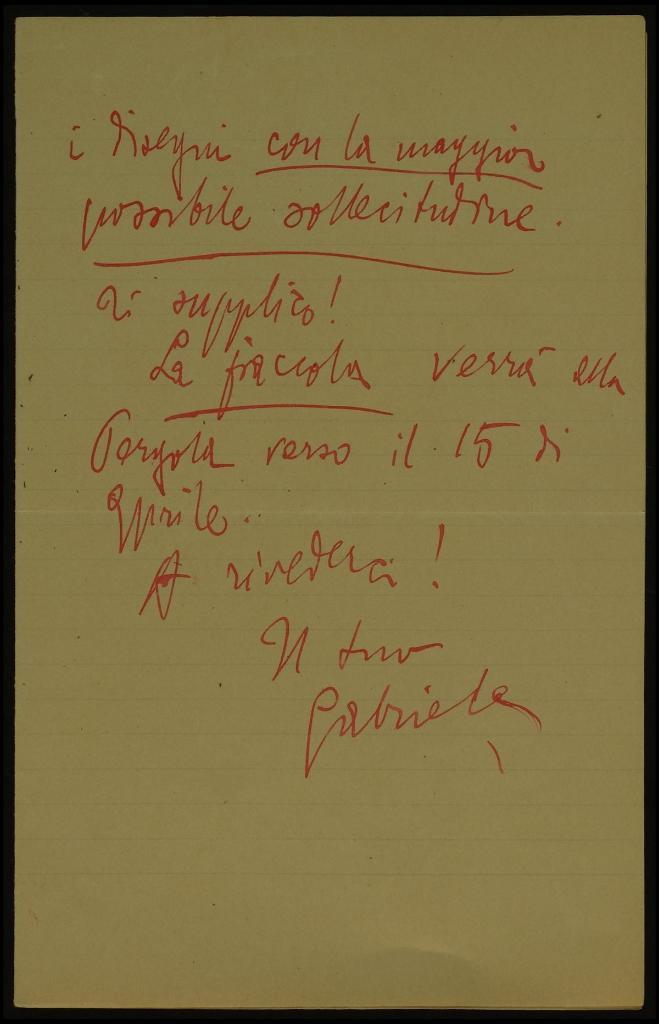 i disegni con la maggior
possibile sollecitudine.
Ti supplico!
La fiaccola verrà alla
Pergola verso il 15 di
Aprile.
A rivederci!
Il tuo
Gabriele